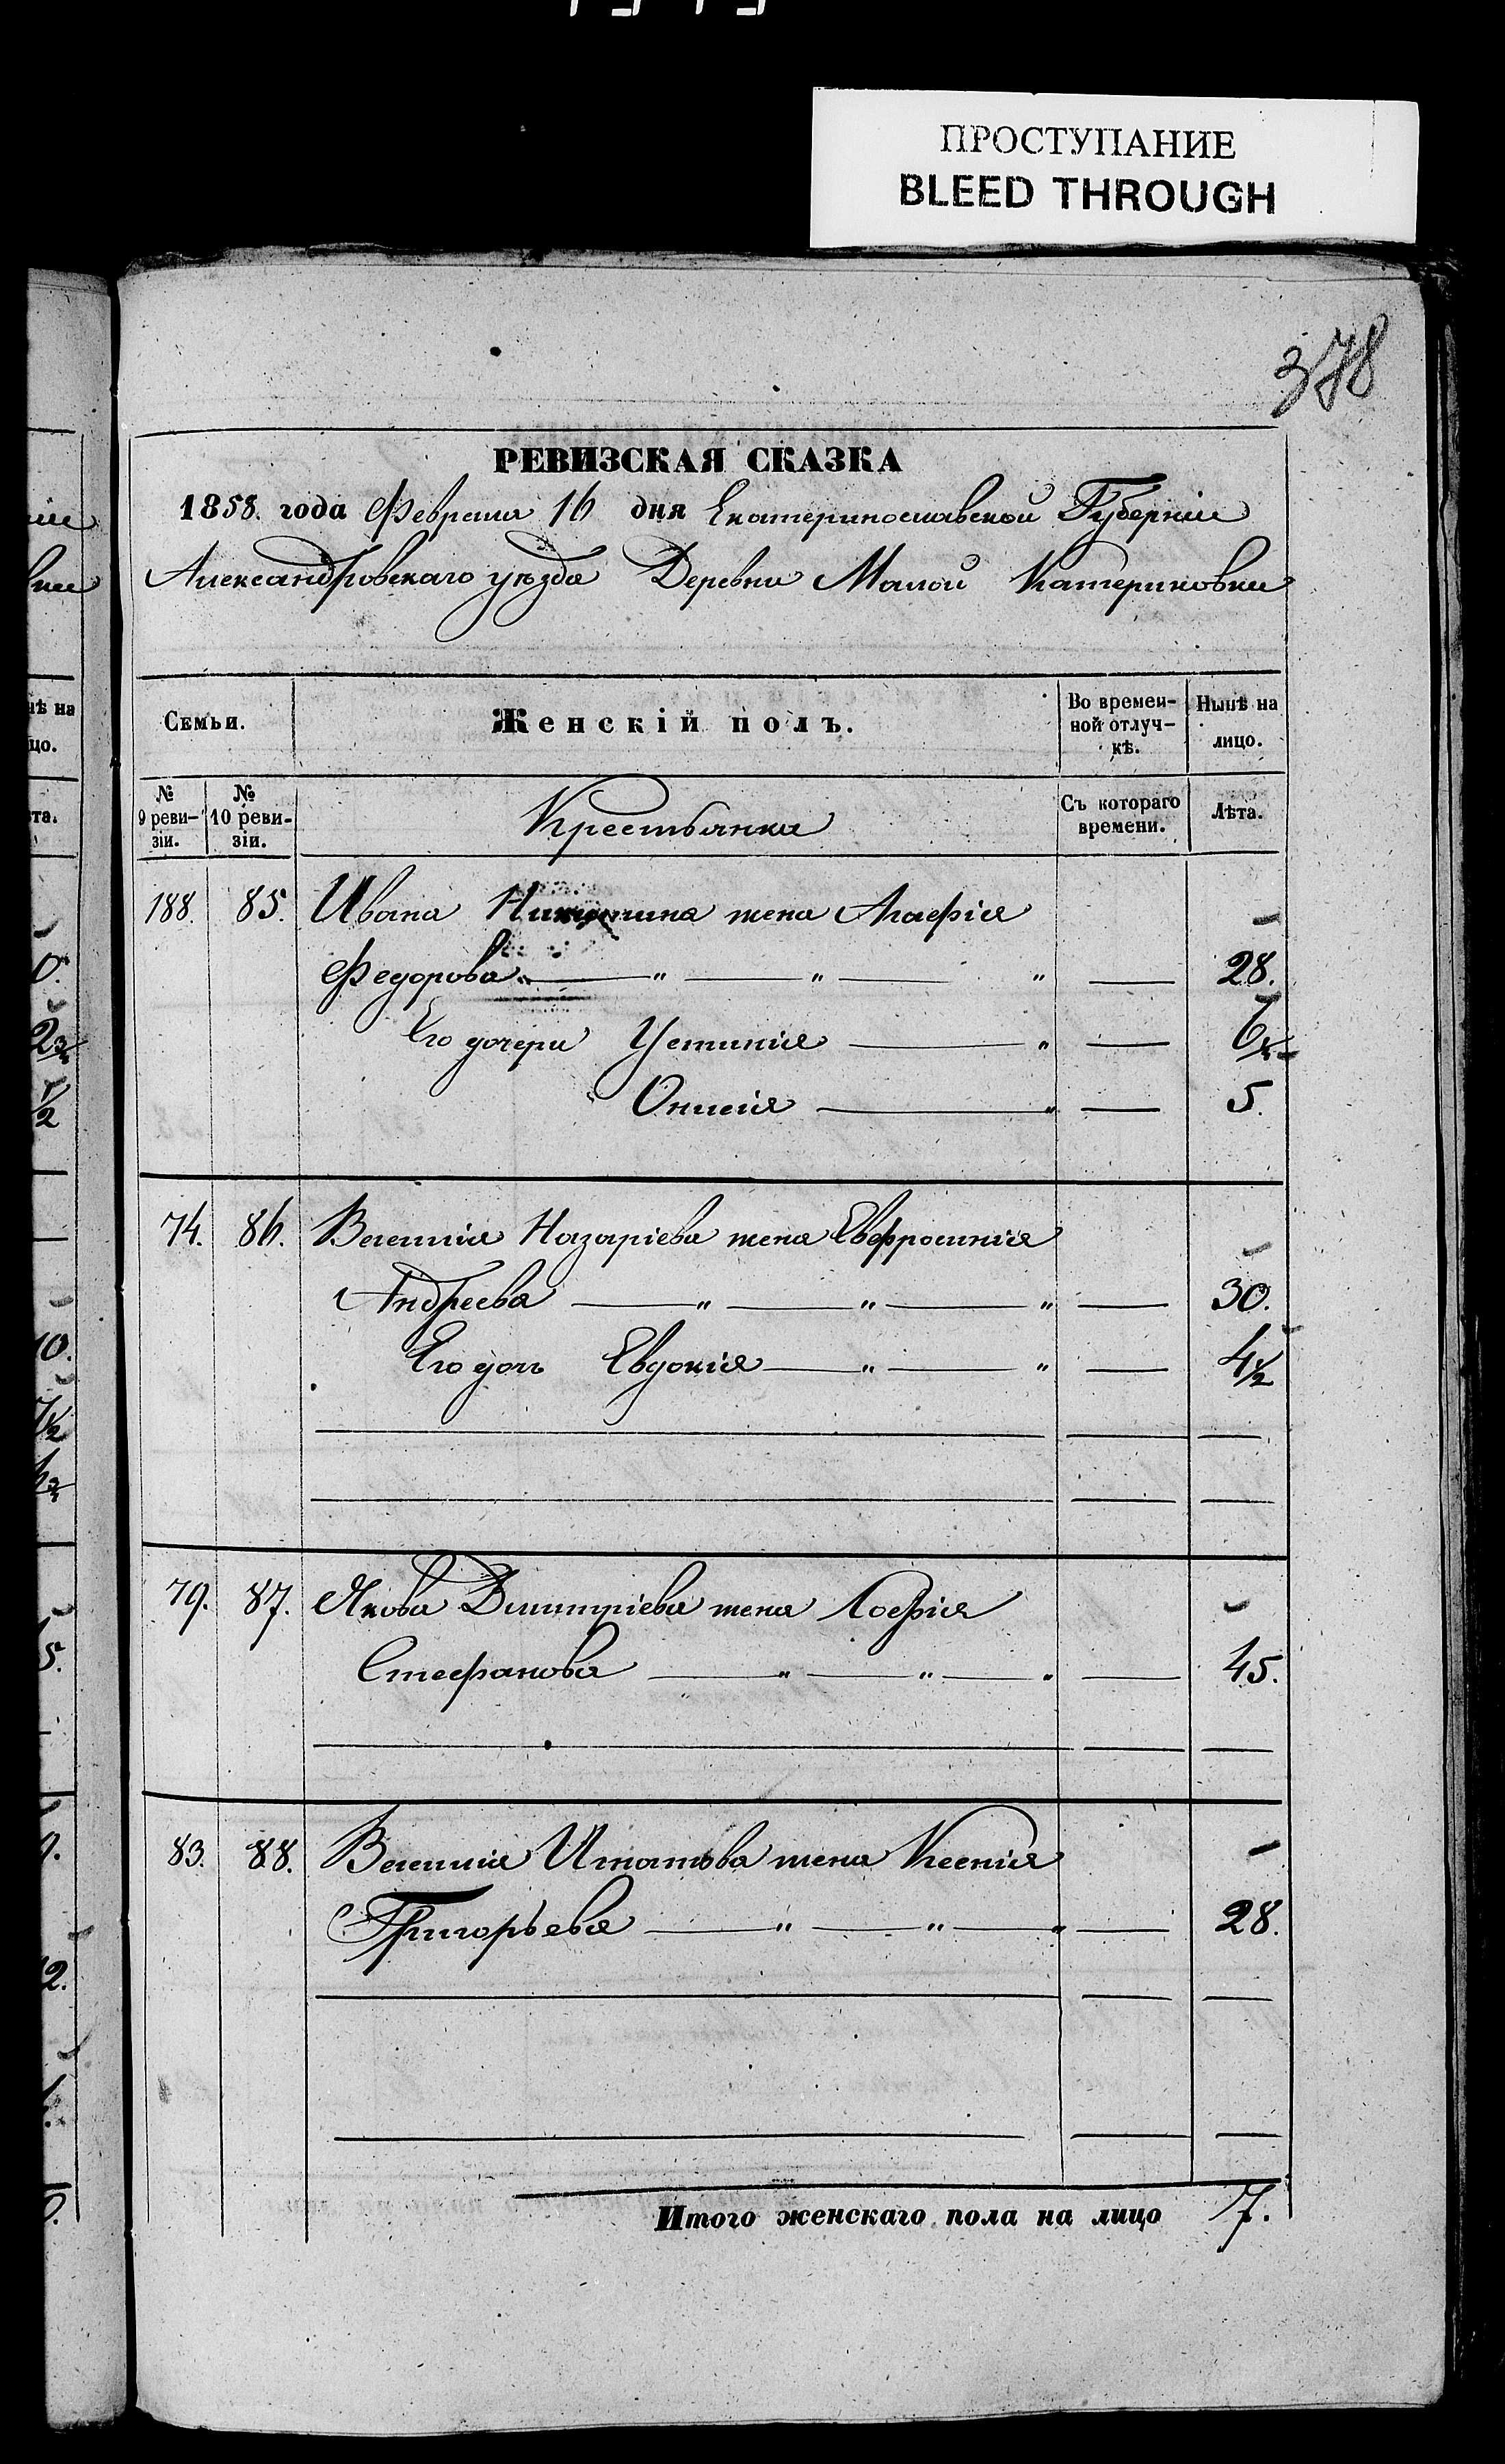 ПРОСТУПАНИЕ
BLEED THROUGH
378
РЕВИЗСКАЯ СКАЗКА
1858. года Февраля 16 дня Екатеринославской Губернiи
Александровскаго уѣзда Деревни Малой Катериновки
Семьи.
Женскій полъ.
Во времен-
ной отлуч-
кѣ.
Нынѣ на
лицо.
№
9 реви-
зіи.
№
10 реви-
зіи.
Съ котораго
времени.
Лѣта.
188. 85. Ивана жена Агафія
Федорова — " — " — " — 28.
Его дочери Устинія — " — 6½
Онисія — " — 5.
74. 86. Василія Назаріева жена Евфросинія
Андреева — " — " — " — 30.
Его дочь Евдокія — " — " — 4½
79. 87. Якова Дмитріева жена Софія
Стефанова — " — " — " — 45.
83. 88. Василія Игнатова жена Ксенія
Григорьева — " — " — " — 28.
Итого женскаго пола на лицо 7.